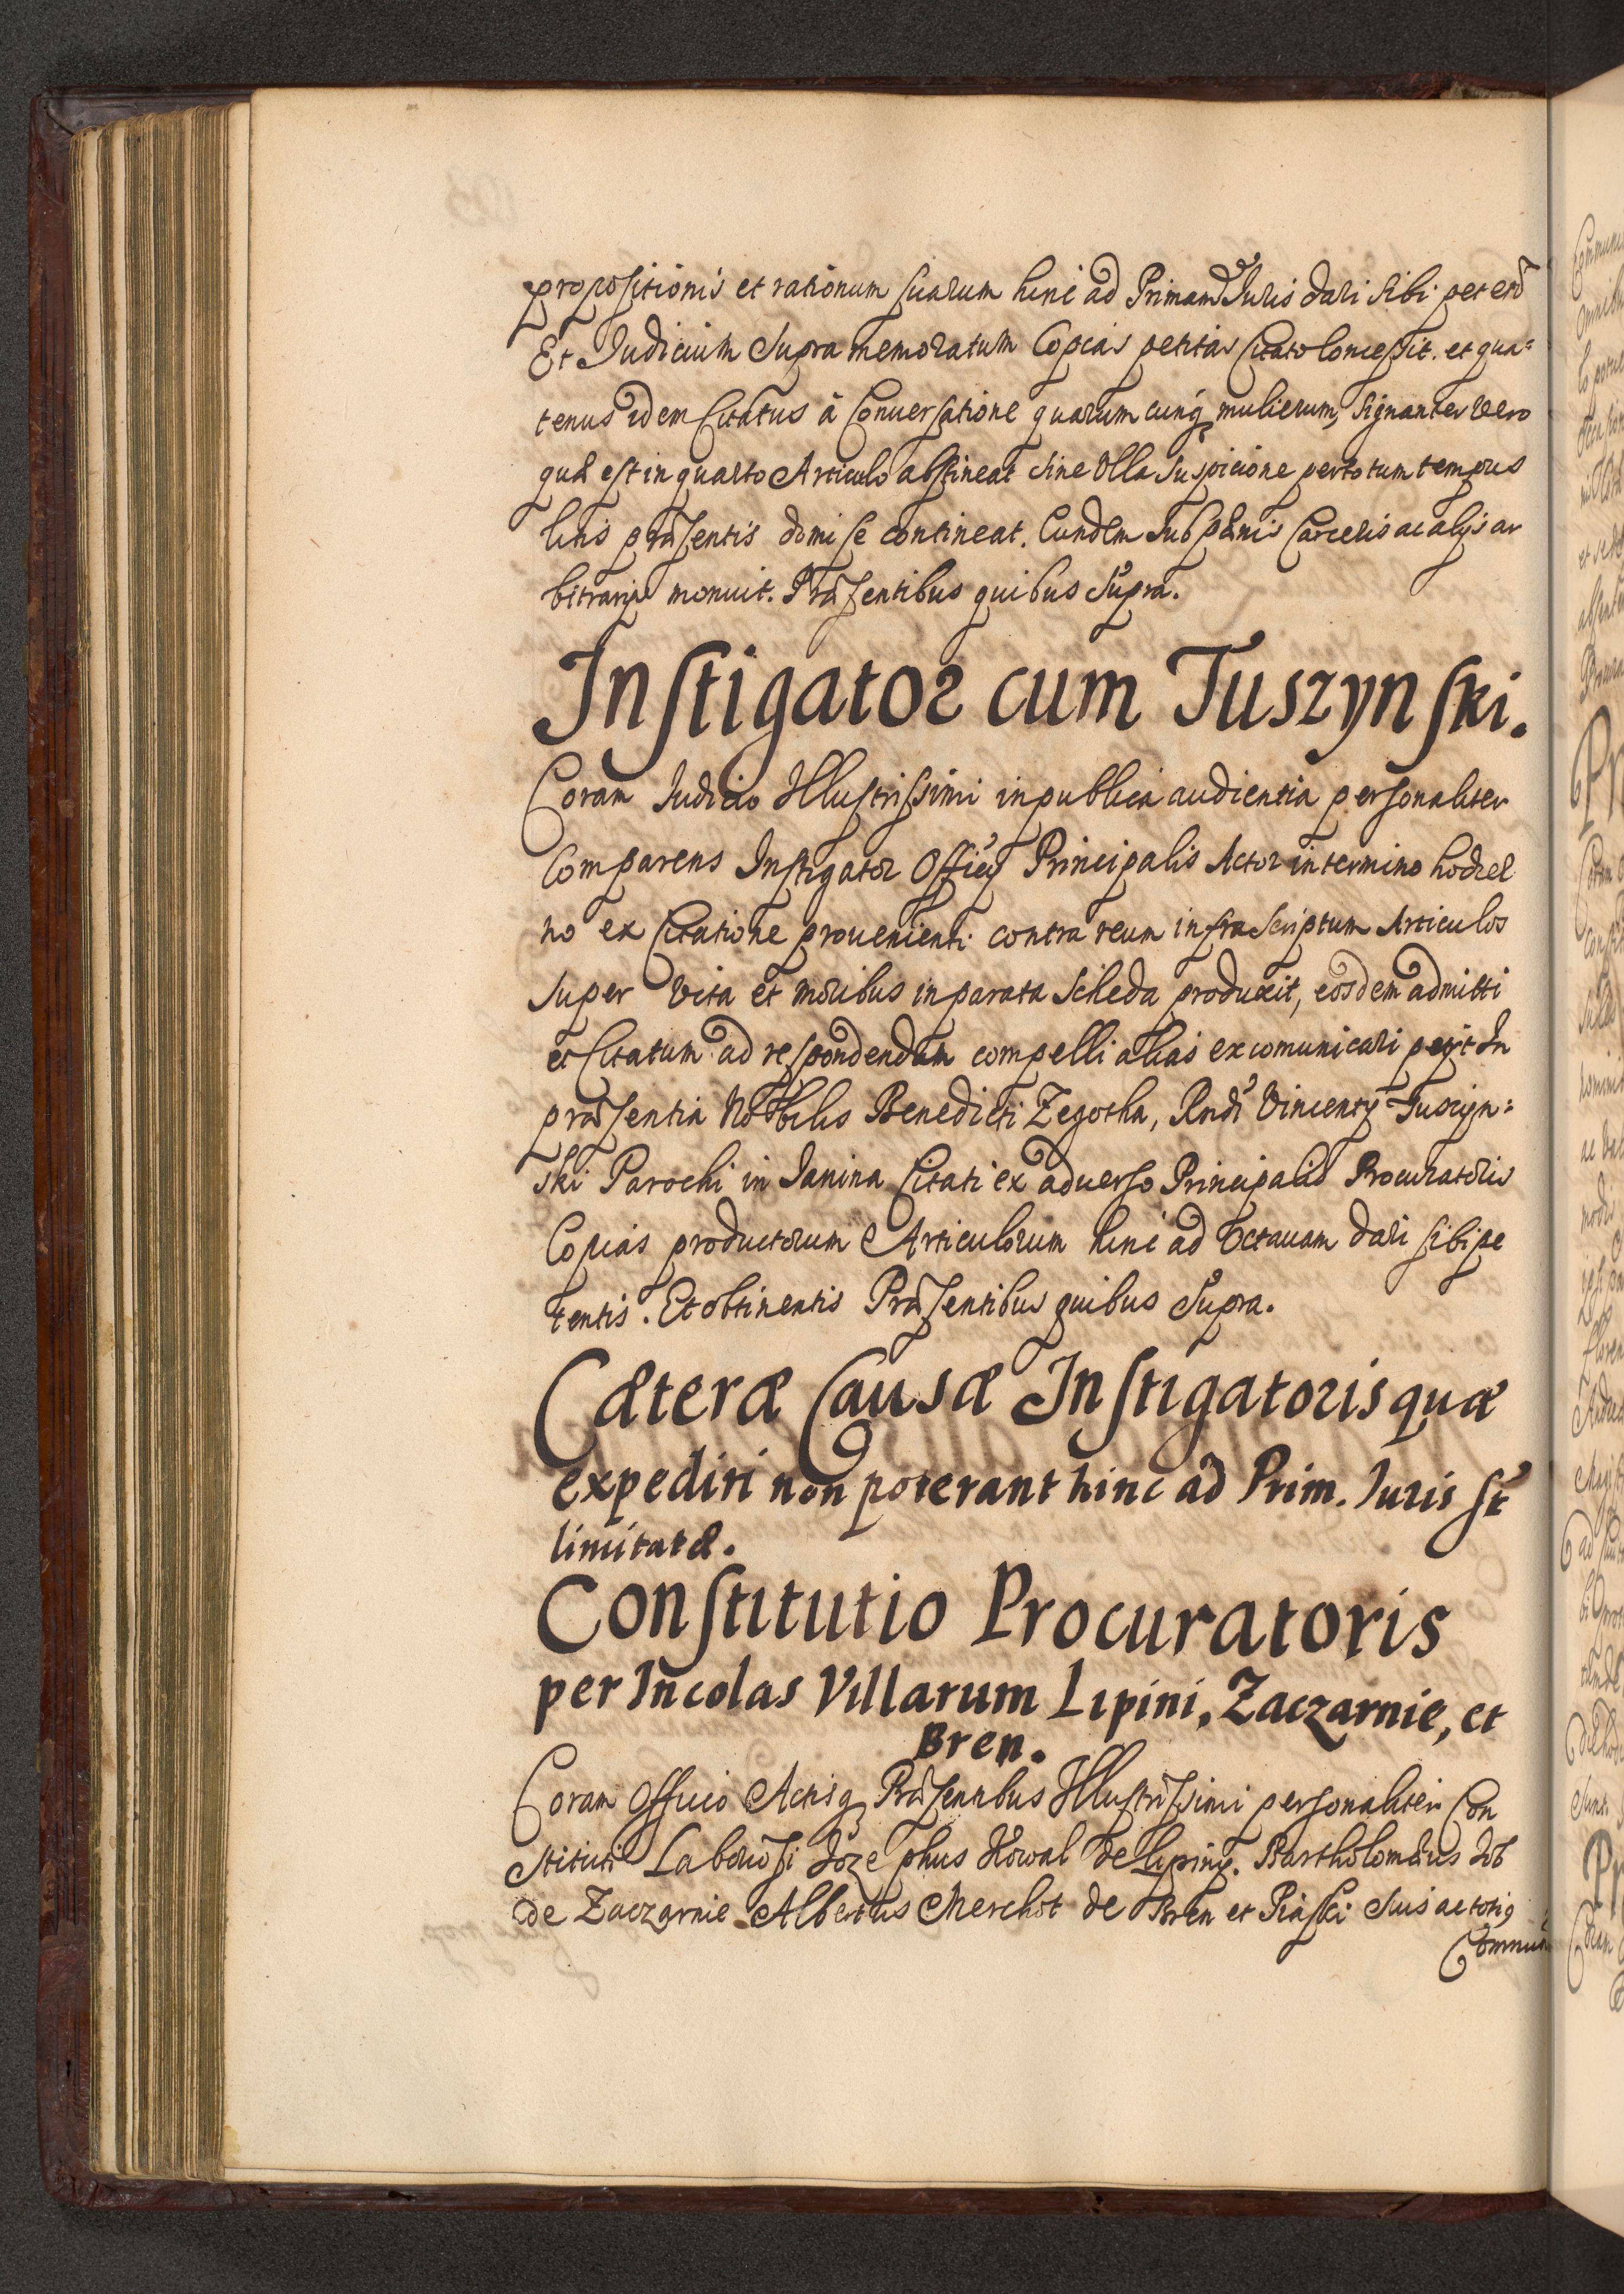 propositionis et rationum suarum hinc ad Primam Iuris dari sibi
Et Iudicium Supra memoratum Copias petitas Citato Concessit. et qua=
tenus idem Citatus à Conuersatione quarumcunq mulierum, signanter vero
quæ est in quarto Articulo abstineat sine Vlla suspicione per totum tempus
litis præsentis domi se contineat. Eundem sub pænis Carceris ac alijs ar
bitrarijs monuit. Præsentibus quibus Supra.
Instigator cum Tuszynski.
Coram Iudicio Illustrissimi in publica audientia personaliter
Comparens Instigator Officij Principalis Actor in termino hodier
no ex Citatione prouenienti contra reum infrascriptum Articulos
super Vita et moribus in parata Scheda produxit, eosdem admitti
et Citatum ad respondendum compelli alias excomunicari petijt In
præsentia Nobilis Benedicti Zegotha, Rndi Vincentij Tuszyn=
ski Parochi in Ianina Citati ex aduerso Principalis Procuratoris
Copias productorum Articulorum hinc ad Octauam dari sibi pe
tentis. Et obtinentis Præsentibus quibus Supra.
Cæteræ Causæ Instigatoris quæ
expediri non poterant hinc ad Prim. Iuris st
limitatæ.
Constitutio Procuratoris
per Incolas Villarum Lipini, Zaczarnie, et
Bren.
Coram Officio Actisq Præsentibus Illustrissimi personaliter Con
stituti Laboriosi Iozephus Kowal de Lipiny. Bartholomæus Iob
de Zaczarnie Albertus Merchot de Bren et Piaski suis ac totiq